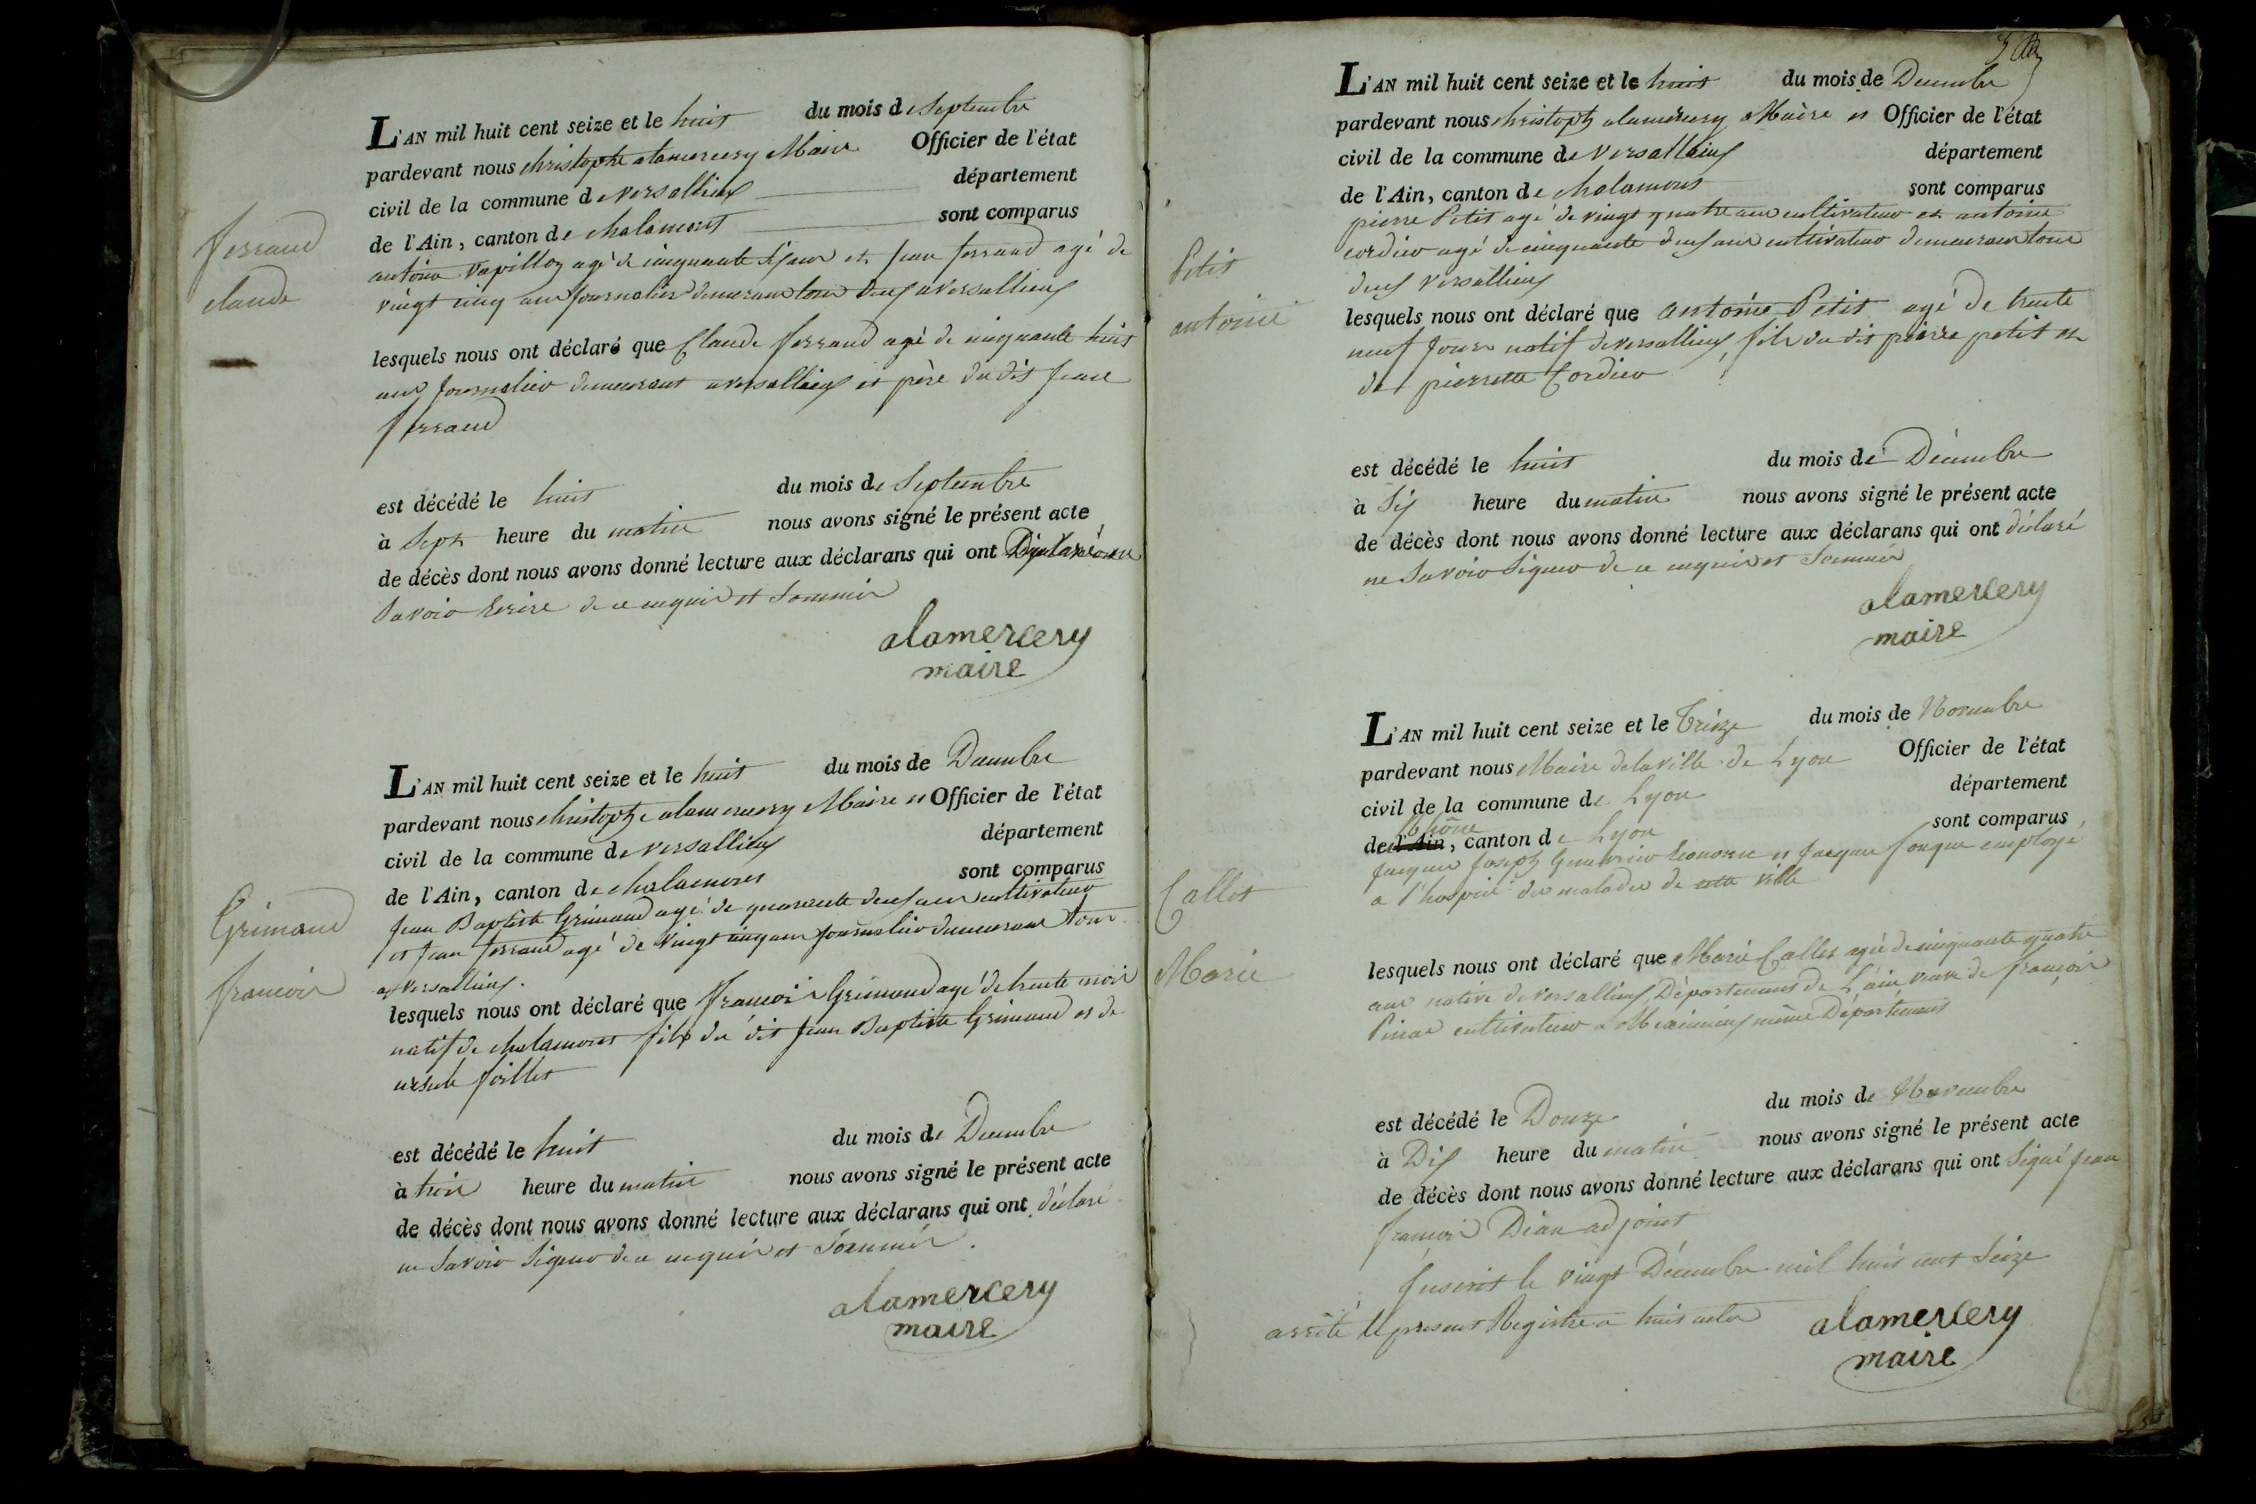 Ferraud
claude
L'AN mil huit cent seize et le huit du mois de Septembre
pardevant nous christophe alamercery Maire Officier de l'état
civil de la commune de versallieux département
de l'Ain, canton de chalamont sont comparus
antoine vapilloz agé de cinquante six ans et jean ferraud agé de
vingt cinq ans journalier demeurans tous deux a versallieux
lesquels nous ont déclaré que Claude ferraud agé de cinquante huit
ans journalier demeurant a versallieux et père du dit jean
ferraud
est décédé le huit du mois de Septembre
à Sept heure du matin nous avons signé le présent acte
de décès dont nous avons donné lecture aux déclarans qui ont
Savoir Ecrire de ce enquis et Sommés
alamercery
maire
Grimaud
francois
L'AN mil huit cent seize et le huit du mois de Decembre
pardevant nous christophe alamercery Maire et Officier de l'état
civil de la commune de versallieux département
de l'Ain, canton de chalamont sont comparus
jean Baptiste Grimaud agé de quarante deux ans cultivateur
et jean ferraud agé de vingt cinq ans journalier demeurans tous
a versallieux.
lesquels nous ont déclaré que francois Grimaud agé de trente mois
natif de chalamont fils du dit jean Baptiste Grimaud et de
ursule foillet
est décédé le huit du mois de Decembre
à trois heure du matin nous avons signé le présent acte
de décès dont nous avons donné lecture aux déclarans qui ont déclaré
ne Savoir Signer de ce enquis et Sommés.
alamercery
maire
Petit
antoine
L'AN mil huit cent seize et le huit du mois de Decembre
pardevant nous christophe alamercery Maire et Officier de l'état
civil de la commune de versallieux département
de l'Ain, canton de chalamont sont comparus
pierre Petit agé de vingt quatre ans cultivateur et antoine
cordier agé de cinquante deux ans cultivateur demeurans tous
deux versallieux
lesquels nous ont déclaré que antoine Petit agé de trente
neuf jours natif de versallieux, fils du dit pierre petit et
de pierrette Cordier
est décédé le huit du mois de Décembre
à Six heure du matin nous avons signé le présent acte
de décès dont nous avons donné lecture aux déclarans qui ont déclaré
ne Savoir Signer de ce enquis et Sommés
alamercery
maire
Callet
Marie
L'AN mil huit cent seize et le Treize du mois de Novembre
pardevant nous Maire de la ville de Lyon Officier de l'état
civil de la commune de Lyon département
Rhône
de l'Ain, canton de Lyon sont comparus
jacques joseph économe et jacques fouque employé
a l'hospice des malades de cette ville
lesquels nous ont déclaré que Marie Callet agée de cinquante quatre
ans native de versallieux, Département de L'ain veuve de francois
Pinar cultivateur a Meximieux même Département
est décédé le Douze du mois de Novembre
à Dix heure du matin nous avons signé le présent acte
de décès dont nous avons donné lecture aux déclarans qui ont Signé jean
francois Dian adjoint
Inscrit le vingt Décembre mil huit cent Seize
arrêté le present Registre a huit actes
alamercery
maire